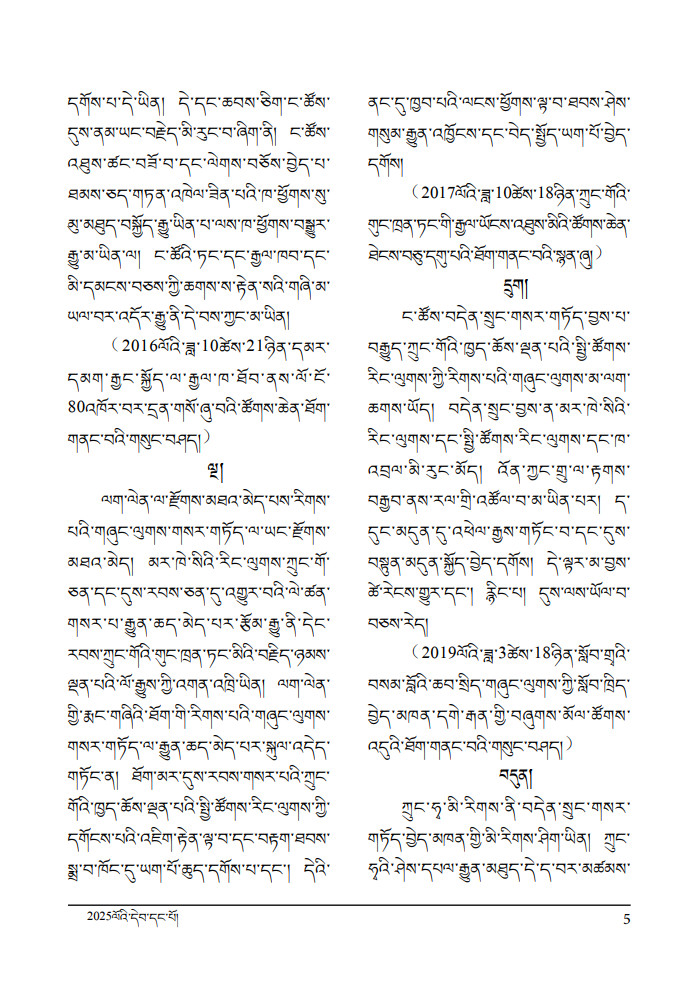 དགོས་པ་དེ་ཡིན། དེ་དང་ཆབས་ཅིག་ང་ཚོས་
དུས་ནམ་ཡང་བརྗེད་མི་རུང་བ་ཞིག་ནི། ང་ཚོས་
འཐུས་ཚང་བཟོ་བ་དང་ལེགས་བཅོས་བྱེད་པ་
ཐམས་ཅད་གཏན་འཁེལ་ཟིན་པའི་ཁ་ཕྱོགས་སུ་
མུ་མཐུད་བསྐྱོད་རྒྱུ་ཡིན་པ་ལས་ཁ་ཕྱོགས་བསྒྱུར་
རྒྱུ་མ་ཡིན་ལ། ང་ཚོའི་ཏང་དང་རྒྱལ་ཁབ་དང་
མི་དམངས་བཅས་ཀྱི་ཆགས་ས་རྟེན་སའི་གཞི་མ་
ཡལ་བར་འདོར་རྒྱུ་ནི་དེ་བས་ཀྱང་མ་ཡིན།
（2016ལོའི་ཟླ་10ཚེས་21ཉིན་དམར་
དམག་རྒྱང་སྐྱོད་ལ་རྒྱལ་ཁ་ཐོབ་ནས་ལོ་ངོ་
80འཁོར་བར་དྲན་གསོ་ཞུ་བའི་ཚོགས་ཆེན་ཐོག་
གནང་བའི་གསུང་བཤད།）
ལྔ།
ལག་ལེན་ལ་རྫོགས་མཐའ་མེད་པས་རིགས་
པའི་གཞུང་ལུགས་གསར་གཏོད་ལ་ཡང་རྫོགས་
མཐའ་མེད། མར་ཁེ་སིའི་རིང་ལུགས་ཀྲུང་གོ་
ཅན་དང་དུས་རབས་ཅན་དུ་འགྱུར་བའི་ལེ་ཚན་
གསར་པ་རྒྱུན་ཆད་མེད་པར་རྩོམ་རྒྱུ་ནི་དེང་
རབས་ཀྲུང་གོའི་གུང་ཁྲན་ཏང་མིའི་བརྗིད་ཉམས་
ལྡན་པའི་ལོ་རྒྱུས་ཀྱི་འགན་འཁྲི་ཡིན། ལག་ལེན་
གྱི་རྨང་གཞིའི་ཐོག་གི་རིགས་པའི་གཞུང་ལུགས་
གསར་གཏོད་ལ་རྒྱུན་ཆད་མེད་པར་སྐུལ་འདེད་
གཏོང་ན། ཐོག་མར་དུས་རབས་གསར་པའི་ཀྲུང་
གོའི་ཁྱད་ཆོས་ལྡན་པའི་སྤྱི་ཚོགས་རིང་ལུགས་ཀྱི་
དགོངས་པའི་འཇིག་རྟེན་ལྟ་བ་དང་བརྟག་ཐབས་
སྨྲ་བ་ཁོང་དུ་ཡག་པོ་ཆུད་དགོས་པ་དང་། དེའི་
ནང་དུ་ཁྱབ་པའི་ལངས་ཕྱོགས་ལྟ་བ་ཐབས་ཤེས་
གསུམ་རྒྱུན་འཁྱོངས་དང་བེད་སྤྱོད་ཡག་པོ་བྱེད་
དགོས།
（2017ལོའི་ཟླ་10ཚེས་18ཉིན་ཀྲུང་གོའི་
གུང་ཁྲན་ཏང་གི་རྒྱལ་ཡོངས་འཐུས་མིའི་ཚོགས་ཆེན་
ཐེངས་བཅུ་དགུ་པའི་ཐོག་གནང་བའི་སྙན་ཞུ།）
དྲུག
ང་ཚོས་བདེན་སྲུང་གསར་གཏོད་བྱས་པ་
བརྒྱུད་ཀྲུང་གོའི་ཁྱད་ཆོས་ལྡན་པའི་སྤྱི་ཚོགས་
རིང་ལུགས་ཀྱི་རིགས་པའི་གཞུང་ལུགས་མ་ལག་
ཆགས་ཡོད། བདེན་སྲུང་བྱས་ན་མར་ཁེ་སིའི་
རིང་ལུགས་དང་སྤྱི་ཚོགས་རིང་ལུགས་དང་ཁ་
འབྲལ་མི་རུང་མོད། འོན་ཀྱང་གྲུ་ལ་རྟགས་
བརྒྱབ་ནས་རལ་གྲི་འཚོལ་བ་མ་ཡིན་པར། ད་
དུང་མདུན་དུ་འཕེལ་རྒྱས་གཏོང་བ་དང་དུས་
བསྟུན་མདུན་སྐྱོད་བྱེད་དགོས། དེ་ལྟར་མ་བྱས་
ཚེ་རེངས་གྱུར་དང་། རྙིང་པ། དུས་ལས་ཡོལ་བ་
བཅས་རེད།
（2019ལོའི་ཟླ་3ཚེས་18ཉིན་སློབ་གྲྭའི་
བསམ་བློའི་ཆབ་སྲིད་གཞུང་ལུགས་ཀྱི་སློབ་ཁྲིད་
བྱེད་མཁན་དགེ་རྒན་གྱི་བཞུགས་མོལ་ཚོགས་
འདུའི་ཐོག་གནང་བའི་གསུང་བཤད།）
བདུན།
ཀྲུང་ཧྭ་མི་རིགས་ནི་བདེན་སྲུང་གསར་
གཏོད་བྱེད་མཁན་གྱི་མི་རིགས་ཤིག་ཡིན། ཀྲུང་
ཧྭའི་ཤེས་དཔལ་རྒྱུན་མཐུད་དེ་ད་བར་མཚམས་
2025ལོའི་དེབ་དང་པོ།
5